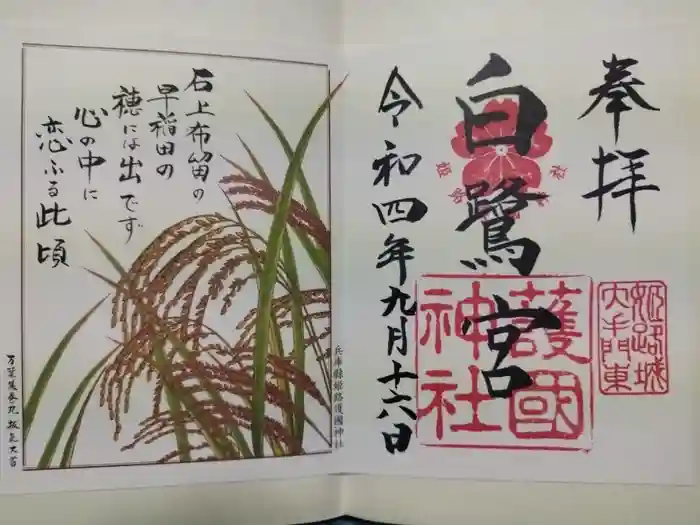 奉拝
白鷺宮
令和四年九月十六日
護國
神社
姫路城
大手門東
石上布留の
早稲田の
穂には出でず
心の中に
恋ふる此頃
兵庫縣姫路護國神社